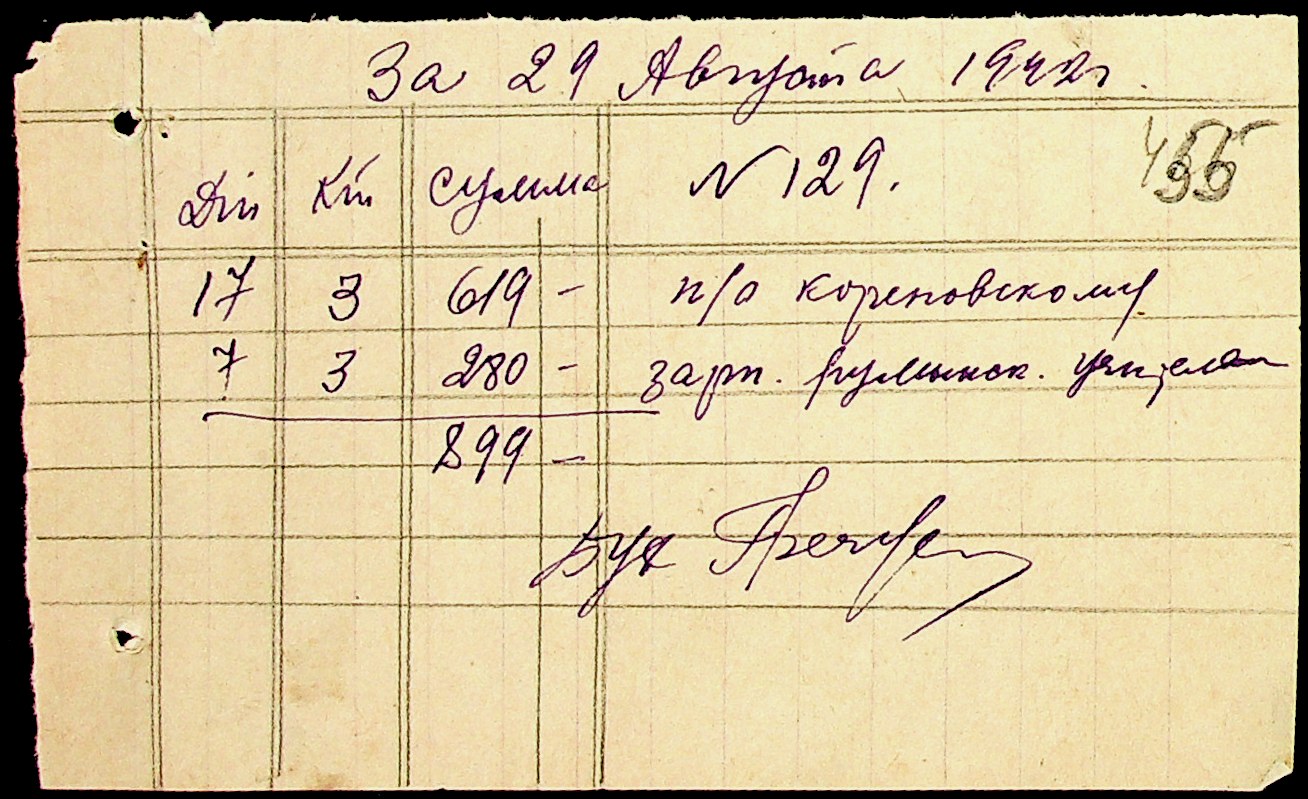 За 29 Августа 1942 г.
455
Дт Кт сумма N 129.
17 3 619 - п/о кореновскому
7 3 280 - зарп. румынск. учител
899 -
Бух